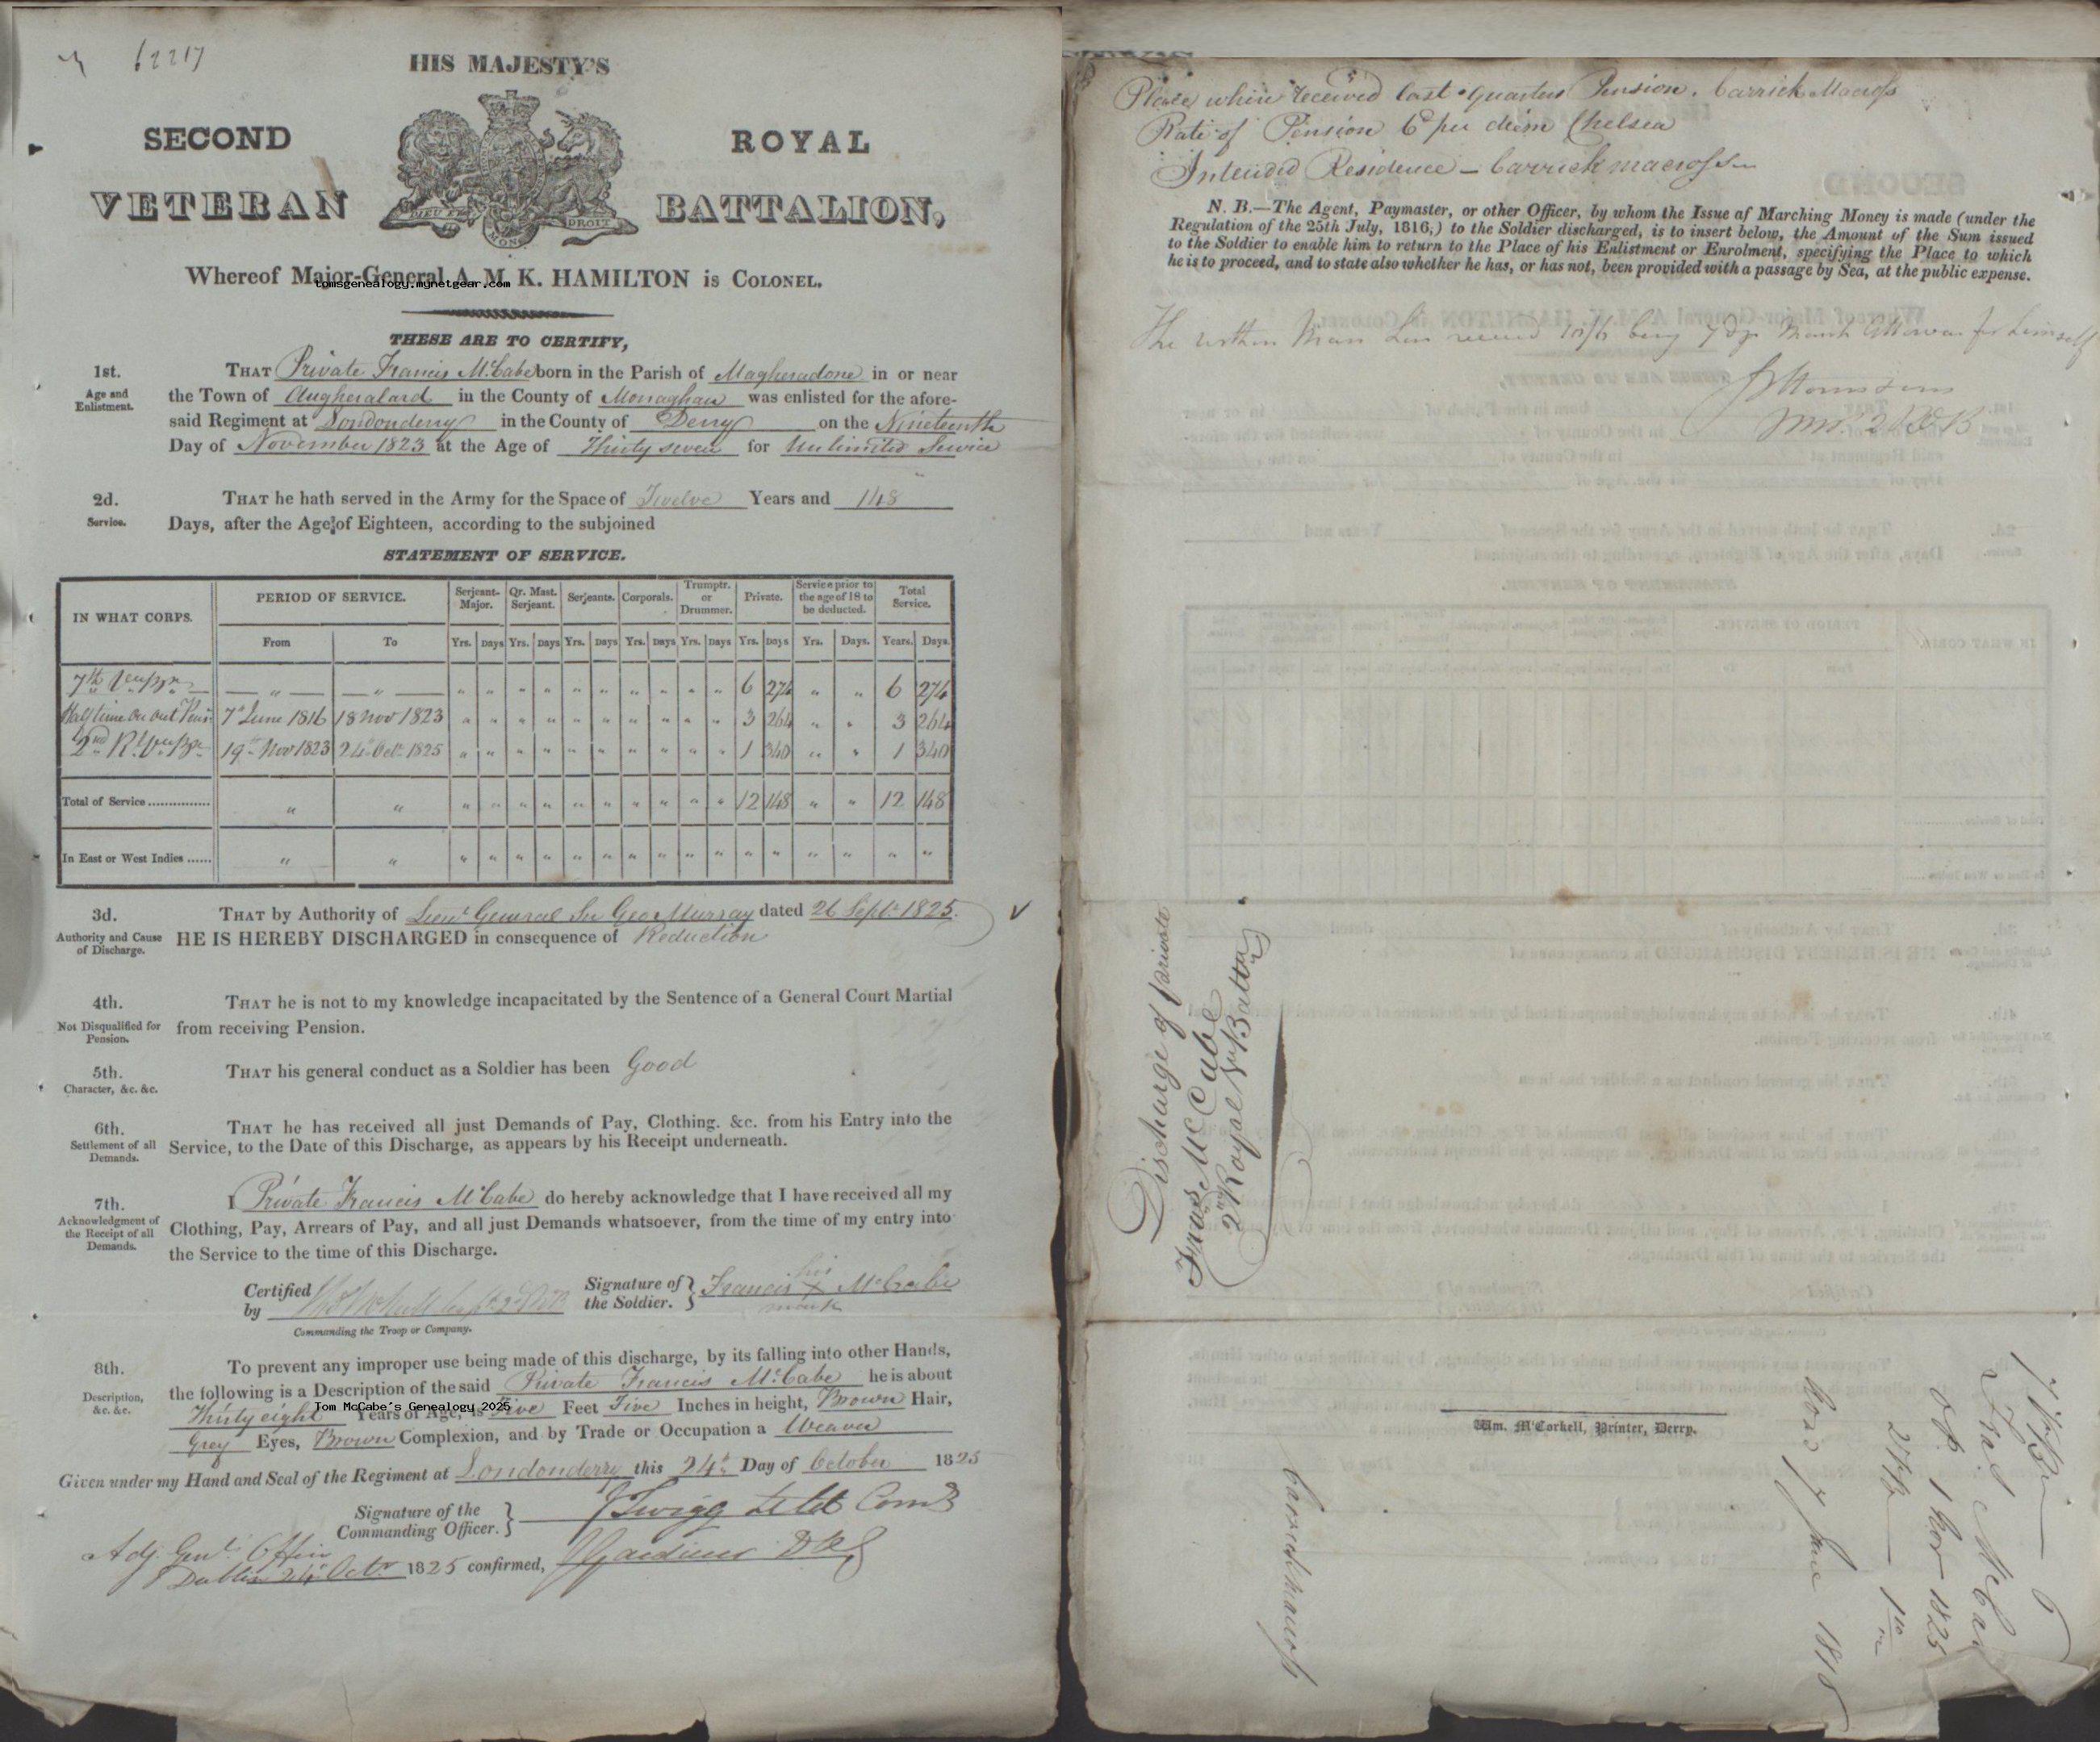 62217
HIS MAJESTY'S
SECOND ROYAL
VETERAN BATTALION,
DIEU ET MON DROIT
Whereof Major-General A. M. K. HAMILTON is COLONEL.
tomsgenealogy.mynetgear.com
THESE ARE TO CERTIFY,
1st. Age and Enlistment.
THAT Private Francis McCabe born in the Parish of Magheradone in or near
the Town of Augheralard in the County of Monaghan was enlisted for the afore-
said Regiment at Londonderry in the County of Derry on the Nineteenth
Day of November 1823 at the Age of Thirty seven for Unlimited Service
2d. Service.
THAT he hath served in the Army for the Space of Twelve Years and 148
Days, after the Age of Eighteen, according to the subjoined
STATEMENT OF SERVICE.
IN WHAT CORPS. PERIOD OF SERVICE. Serjeant-Major. Qr. Mast. Serjeant. Serjeants. Corporals. Trumptr. or Drummer. Private. Service prior to the age of 18 to be deducted. Total Service.
From To Yrs. Days Yrs. Days Yrs. Days Yrs. Days Yrs. Days Yrs. Days Yrs. Days. Years. Days.
7th — " — — " — " " " " " " " " " " 6 274 " " 6 274
Half time on out Pens. 7th June 1816 18 Nov 1823 " " " " " " " " " " 3 264 " " 3 264
2nd Rl. 19th Nov 1823 24th Octr. 1825 " " " " " " " " " " 1 340 " " 1 340
Total of Service " " " " " " " " " " " " 12 148 " " 12 148
In East or West Indies " " " " " " " " " " " " " " " " " "
3d. Authority and Cause of Discharge.
THAT by Authority of Lieut. General Sir Geo Murray dated 26 Septr. 1825.
HE IS HEREBY DISCHARGED in consequence of Reduction
4th. Not Disqualified for Pension.
THAT he is not to my knowledge incapacitated by the Sentence of a General Court Martial
from receiving Pension.
5th. Character, &c. &c.
THAT his general conduct as a Soldier has been Good
6th. Settlement of all Demands.
THAT he has received all just Demands of Pay, Clothing. &c. from his Entry into the
Service, to the Date of this Discharge, as appears by his Receipt underneath.
7th. Acknowledgment of the Receipt of all Demands.
I Private Francis McCabe do hereby acknowledge that I have received all my
Clothing, Pay, Arrears of Pay, and all just Demands whatsoever, from the time of my entry into
the Service to the time of this Discharge.
Certified by
Commanding the Troop or Company.
Signature of the Soldier. Francis his X mark McCabe
8th. Description, &c. &c.
To prevent any improper use being made of this discharge, by its falling into other Hands,
the following is a Description of the said Private Francis McCabe he is about
Thirty eight Years of Age, is Five Feet Five Inches in height, Brown Hair,
Tom McCabe's Genealogy 2025
Grey Eyes, Brown Complexion, and by Trade or Occupation a Weaver
Given under my Hand and Seal of the Regiment at Londonderry this 24th Day of October 1825
Signature of the Commanding Officer. Twigg
Adj. Genl. Office
Dublin 24 Octr. 1825 confirmed, Gardiner
Place where received last Quarters Pension. Carrick Macross
Rate of Pension 6d per diem Chelsea
Intended Residence - Carrickmacross
N. B.—The Agent, Paymaster, or other Officer, by whom the Issue af Marching Money is made (under the
Regulation of the 25th July, 1816,) to the Soldier discharged, is to insert below, the Amount of the Sum issued
to the Soldier to enable him to return to the Place of his Enlistment or Enrolment, specifying the Place to which
he is to proceed, and to state also whether he has, or has not, been provided with a passage by Sea, at the public expense.
The within Man has received 10/6 being 7 Days March Allowance for himself
Discharge of Private
Frans. McCabe
2nd Royal Vn Battn
Wm. M'Corkell, Printer, Derry.
Carrickmacross
Fras. McCabe
1 Nov 1825
7 June 1816